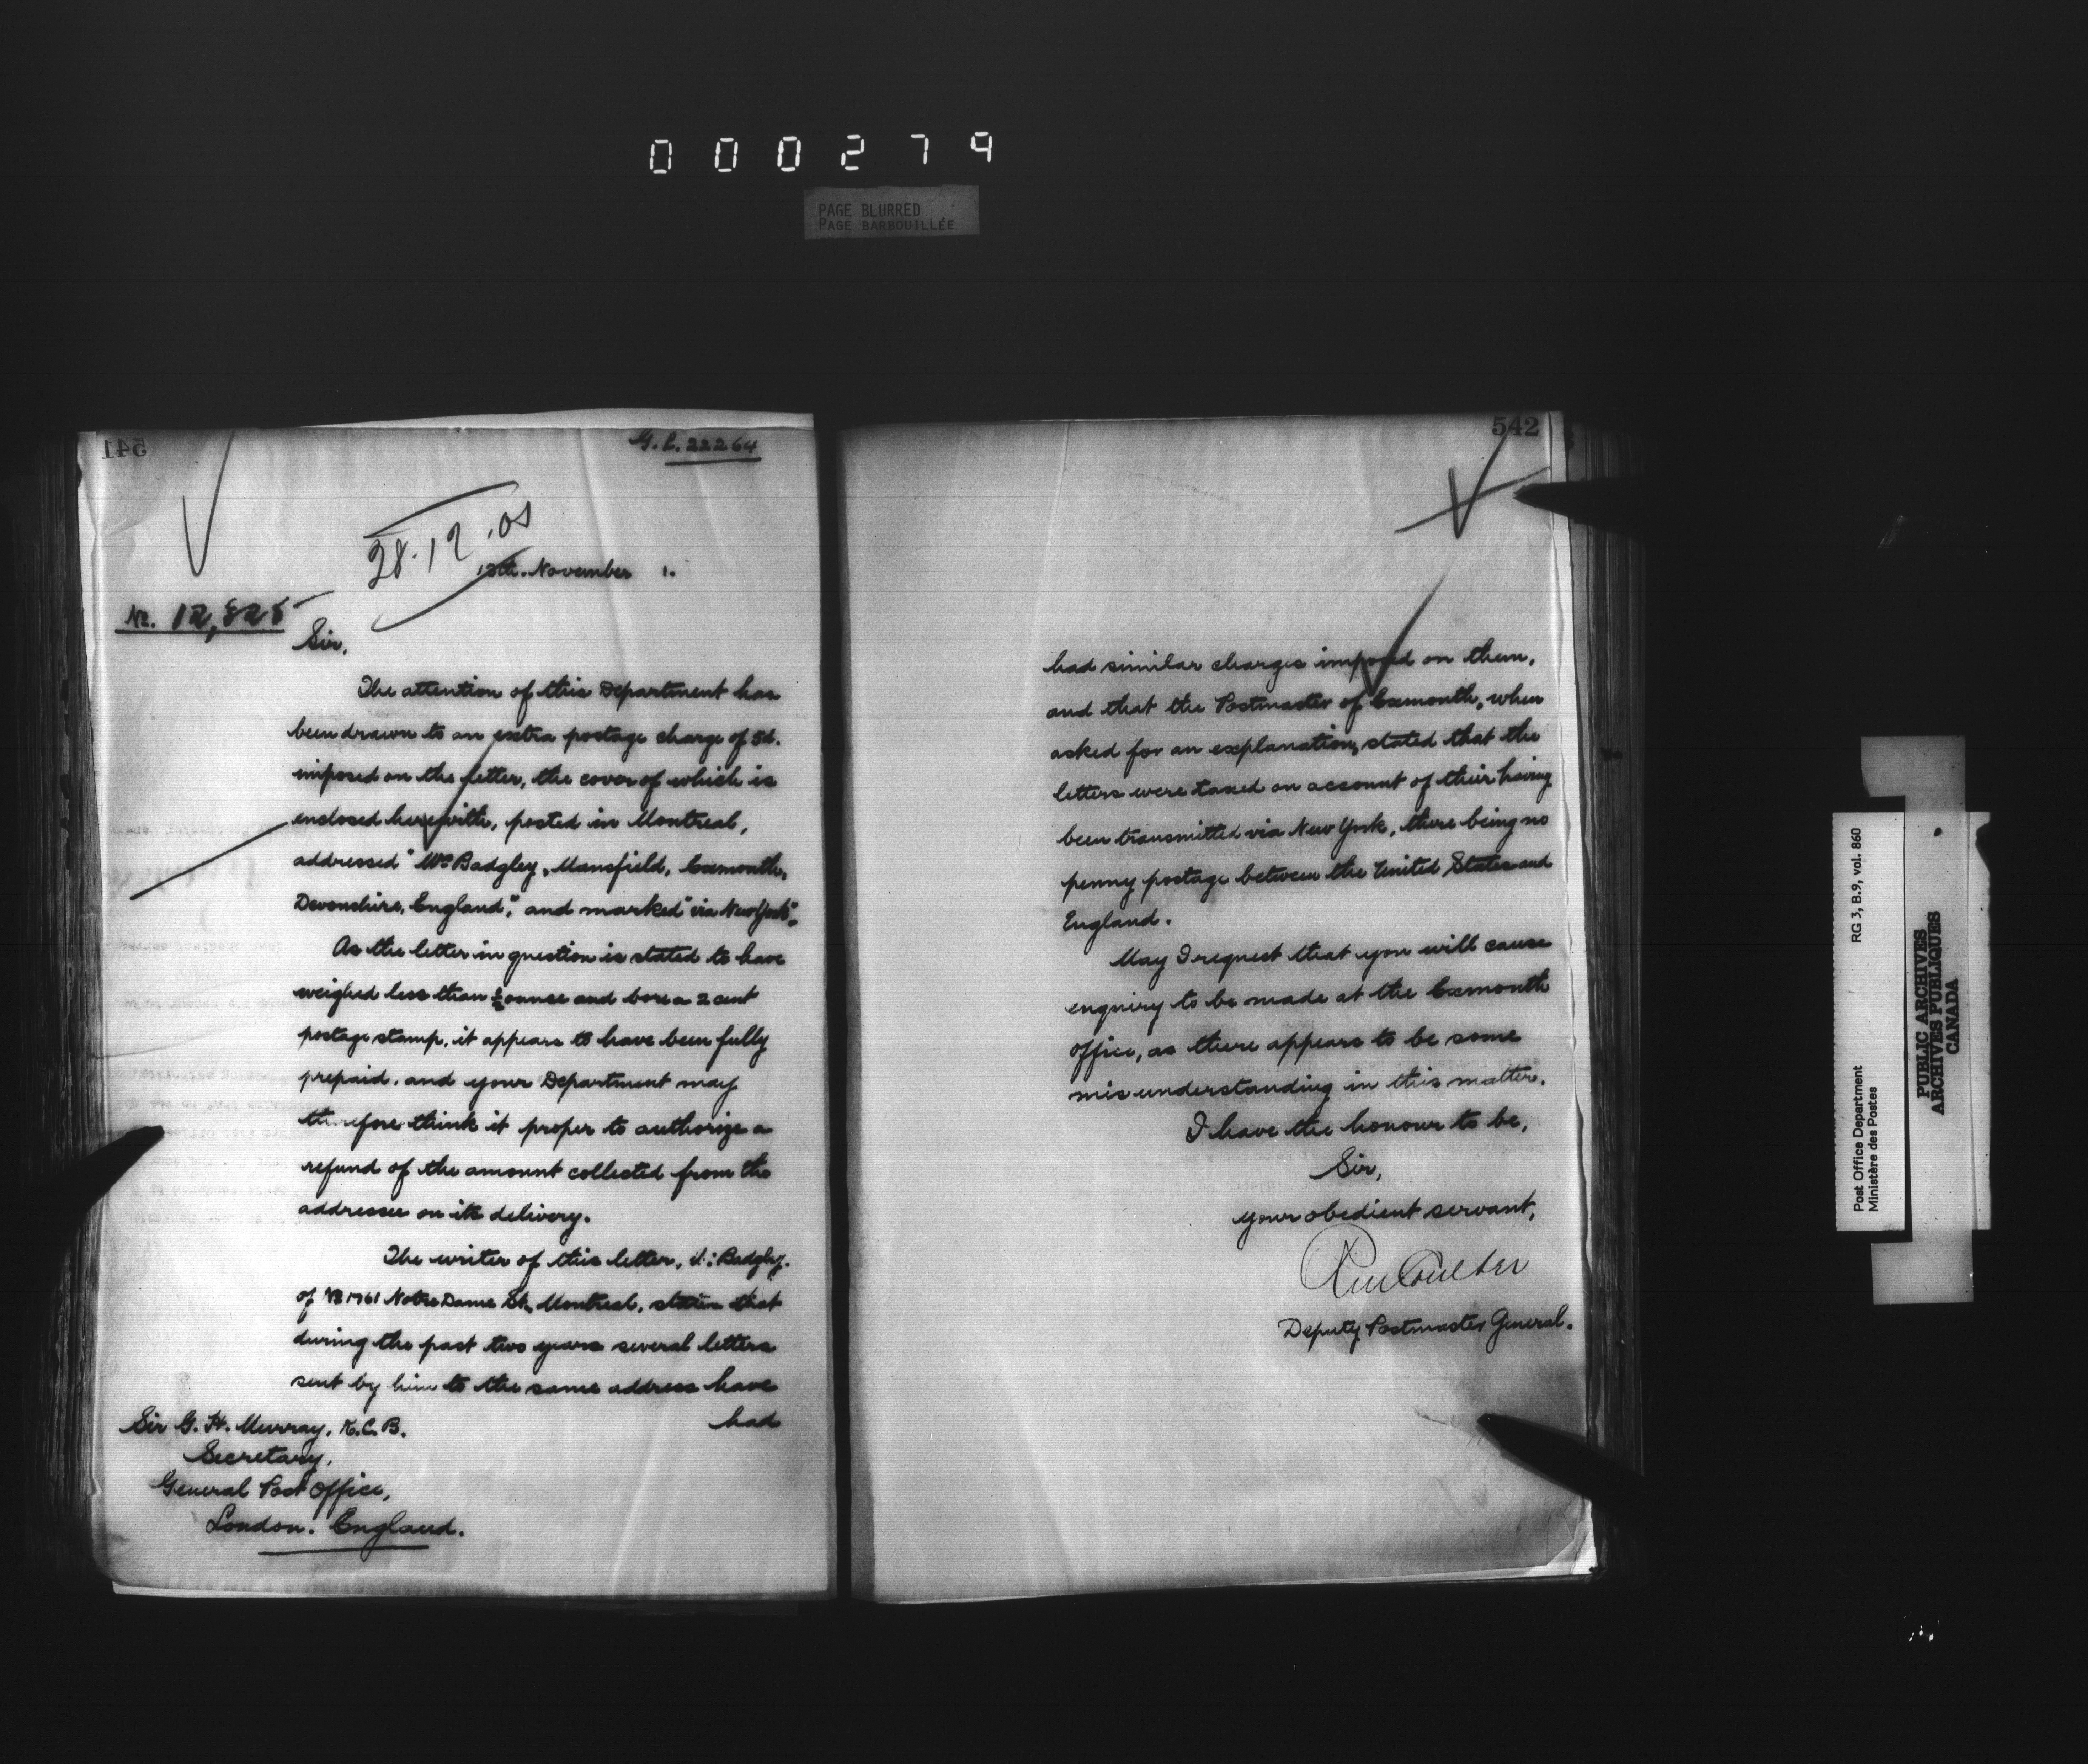 000279
PAGE BLURRED
PAGE BARBOUILLÉE
541
G. P. 22264
28.12.01
13th. November 1.
No. 12,828
Sir,
The attention of this Department has
been drawn to an extra postage charge of 5d.
imposed on the letter, the cover of which is
enclosed herewith, posted in Montreal,
addressed "Mrs Badgley, Mansfield, Exmouth,
Devonshire, England," and marked "via New York".
As the letter in question is stated to have
weighed less than ½ ounce and bore a 2 cent
postage stamp, it appears to have been fully
prepaid, and your Department may
therefore think it proper to authorize a
refund of the amount collected from the
addressee on its delivery.
The writer of this letter, Badgley,
of No 1761 Notre Dame St., Montreal, states that
during the past two years several letters
sent by him to the same address have
had
Sir G. H. Murray, K.C.B.
Secretary,
General Post Office,
London. England.
542
had similar charges imposed on them,
and that the Postmaster of Exmouth, when
asked for an explanation, stated that the
letters were taxed on account of their having
been transmitted via New York, there being no
penny postage between the United States and
England.
May I request that you will cause
enquiry to be made at the Exmouth
office, as there appears to be some
misunderstanding in this matter.
I have the honour to be,
Sir,
your obedient servant,
RM Coulter
Deputy Postmaster General.
Post Office Department RG 3, B.9, vol. 860
Ministère des Postes
PUBLIC ARCHIVES
ARCHIVES PUBLIQUES
CANADA